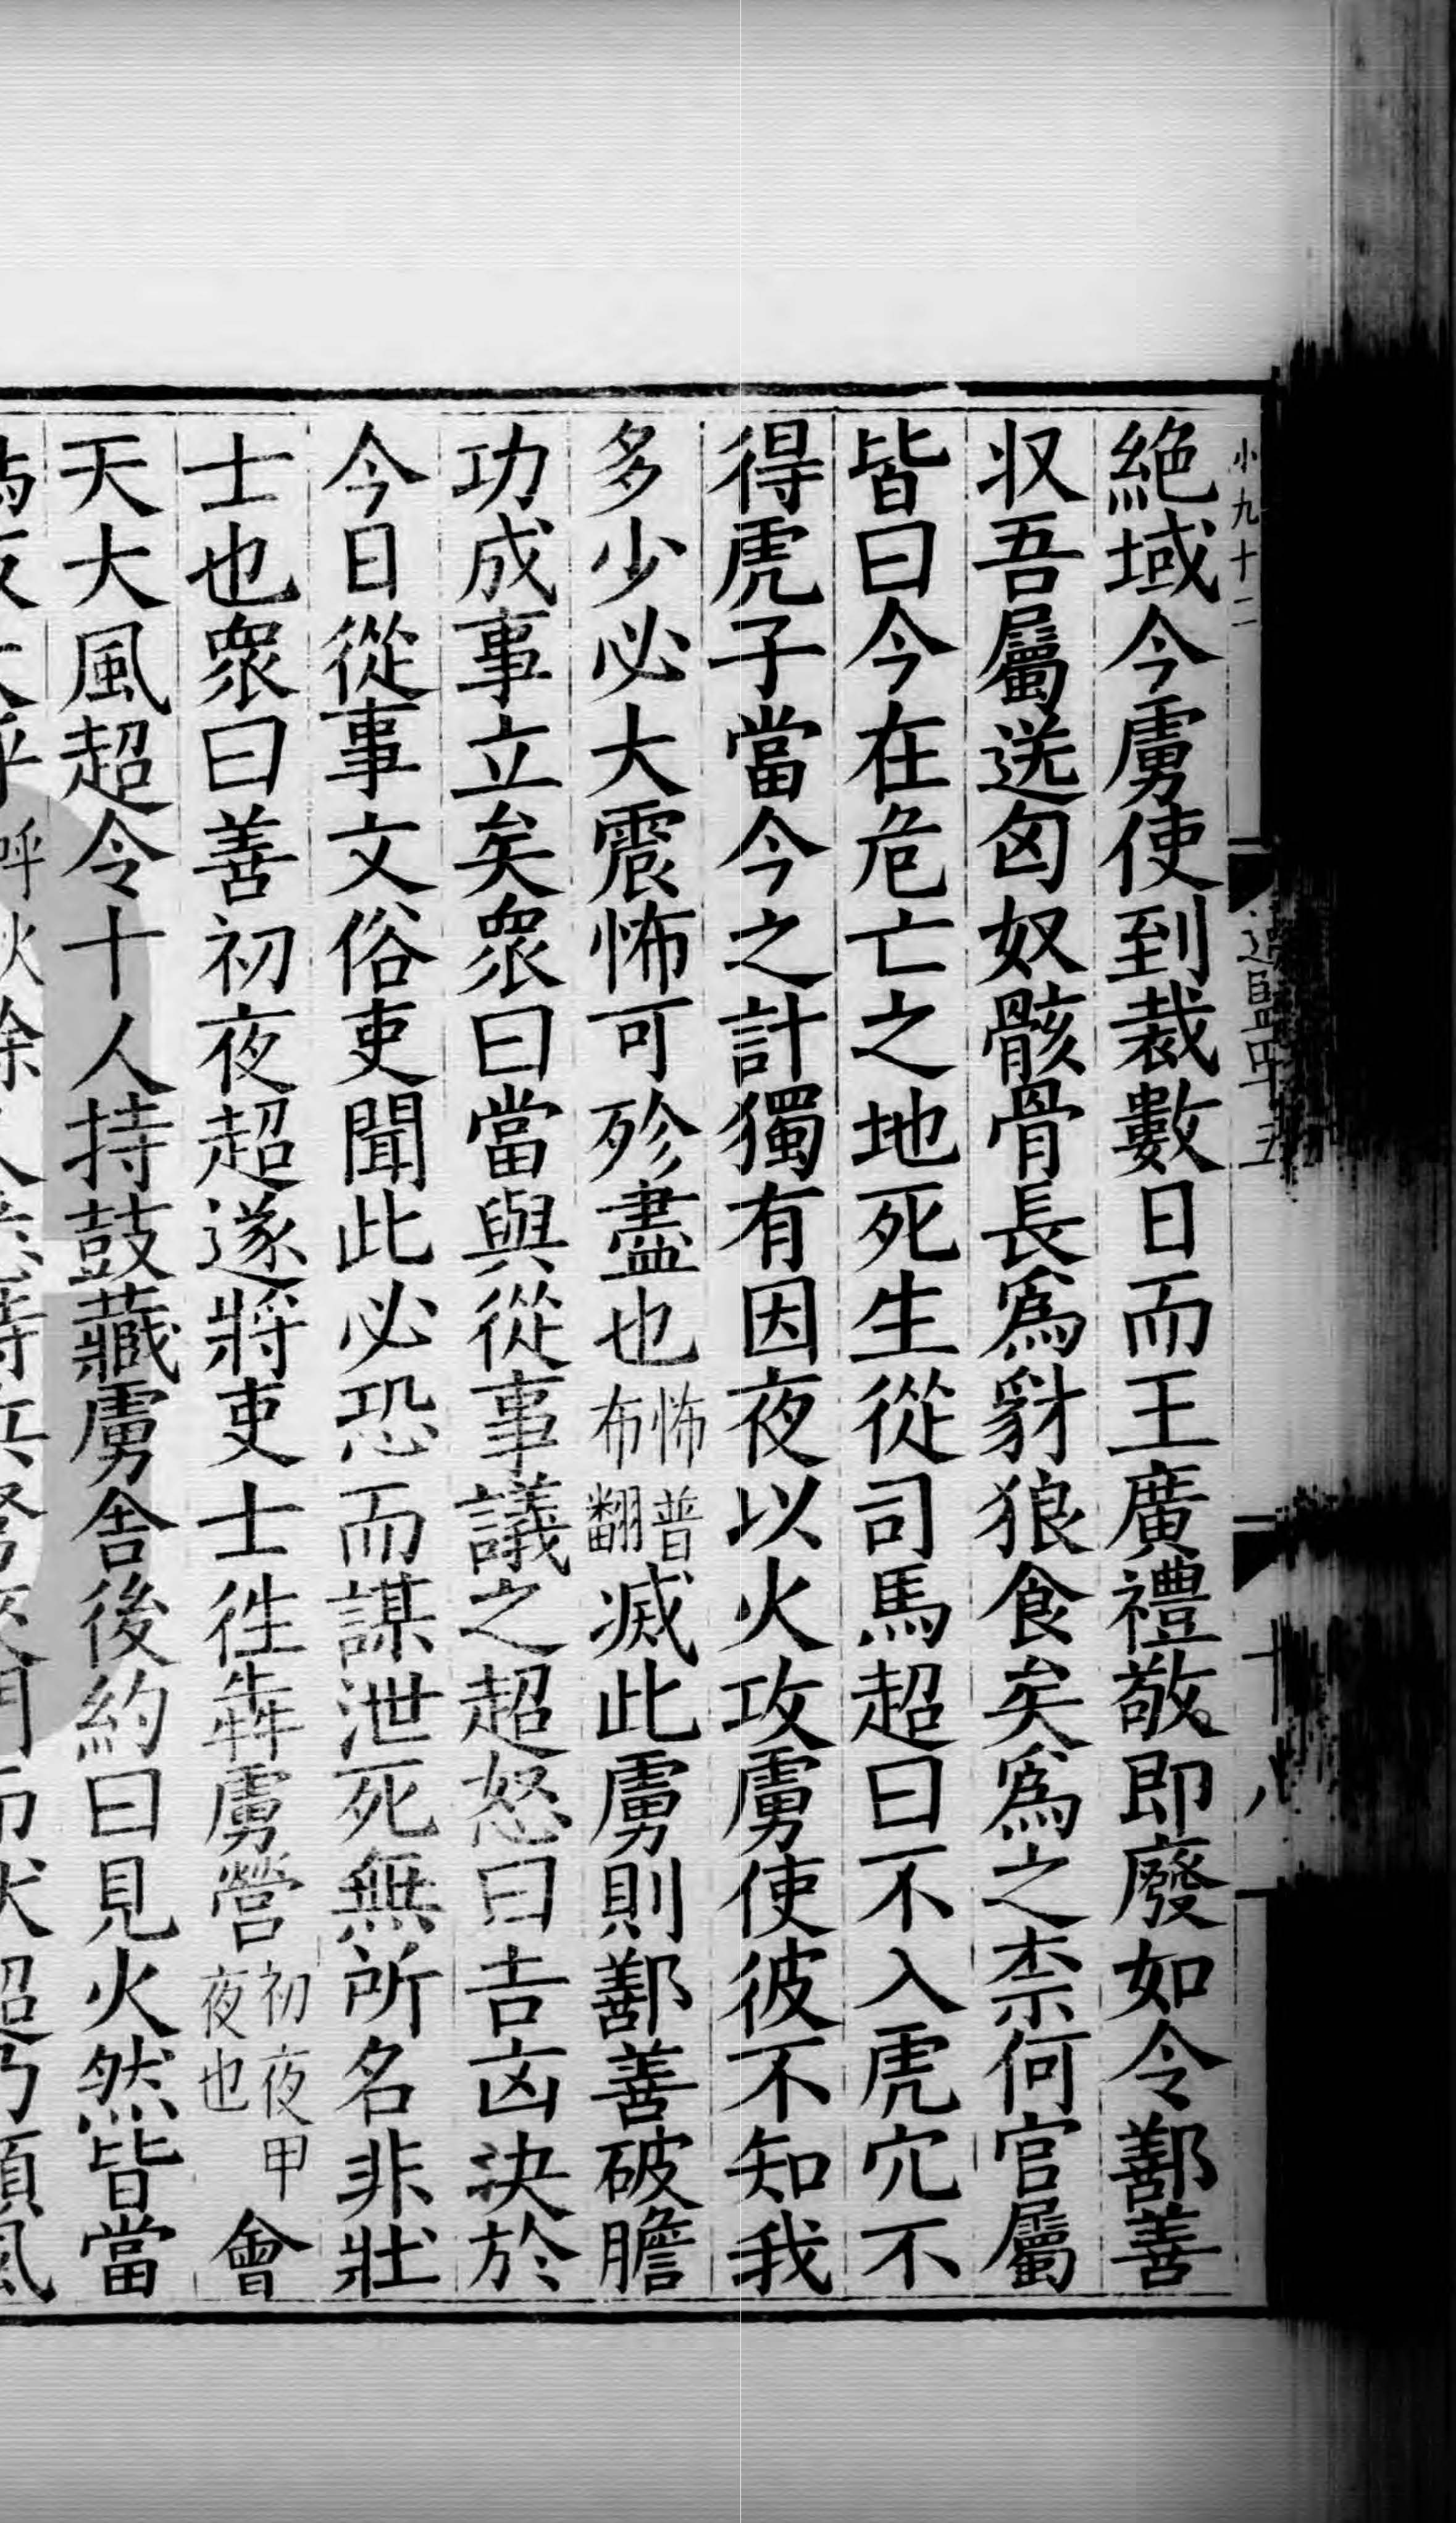 小九十二
十八
絶域今虜使到裁數日而王廣禮敬即廢如令鄯善
収吾屬送匈奴骸骨長爲豺狼食矣爲之柰何官屬
皆曰今在危亡之地死生從司馬超曰不入虎穴不
得虎子當今之計獨有因夜以火攻虜使彼不知我
多少必大震怖可殄盡也怖普布翻滅此虜則鄯善破膽
功成事立矣衆曰當與從事議之超怒曰吉凶決於
今日從事文俗吏聞此必恐而謀泄死無所名非壯
士也衆曰善初夜超遂將吏士徃犇虜營初夜甲夜也會
天大風超令十人持鼓藏虜舍後約曰見火然皆當